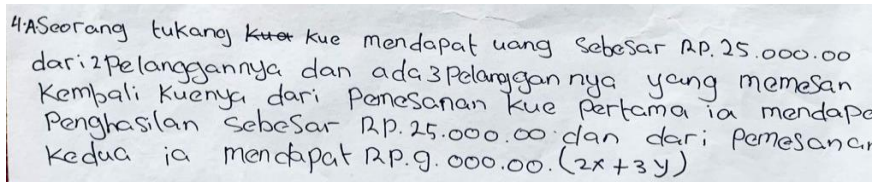 4.A Seorang tukang kue mendapat uang sebesar RP. 25.000.00
dari 2 Pelanggannya dan ada 3 Pelanggannya yang memesan
Kembali Kuenya dari Pemesanan Kue Pertama ia mendapa
Penghasilan sebesar RP. 25.000.00 dan dari Pemesanan
Kedua ia mendapat RP. 9.000.00. (2x + 3y)